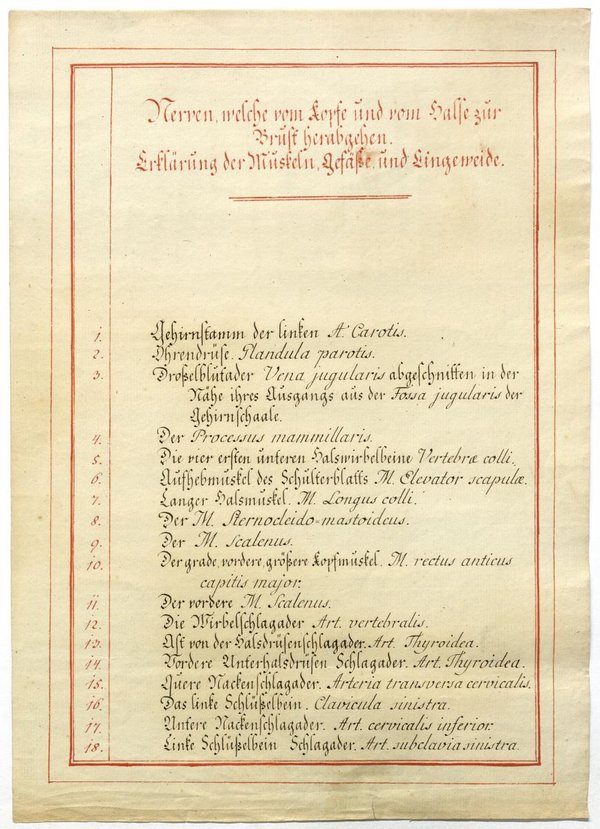 Nerven, welche vom Kopfe und vom Halse zur
Brust herabgehen.
Erklärung der Muskeln, Gefäße, und Eingeweide.
1. Gehirnstamm der linken A. Carotis.
2. Ohrendrüse. Glandula parotis.
3. Droßelblutader Vena jugularis abgeschnitten in der
Nähe ihres Ausgangs aus der Fossa jugularis der
Gehirnschaale.
4. Der Processus mammillaris.
5. Die vier ersten unteren Halswirbelbeine Vertebræ colli.
6. Aufhebmuskel des Schulterblatts M. Elevator scapulæ.
7. Langer Halsmuskel. M. Longus colli.
8. Der M. Sternocleido=mastoideus.
9. Der M. Scalenus.
10. Der grade, vordere, größere Kopfmuskel. M. rectus anticus
capitis major.
11. Der vordere M. Scalenus.
12. Die Wirbelschlagader Art. vertebralis.
13. Ast von der Halsdrüsenschlagader. Art. Thyroidea.
14. Vordere Unterhalsdrüsen Schlagader. Art. Thyroidea.
15. Quere Nackenschlagader. Arteria transversa cervicalis.
16. Das linke Schlüßelbein. Clavicula sinistra.
17. Untere Nackenschlagader. Art. cervicalis inferior.
18. Linke Schlüßelbein Schlagader. Art. subclavia sinistra.